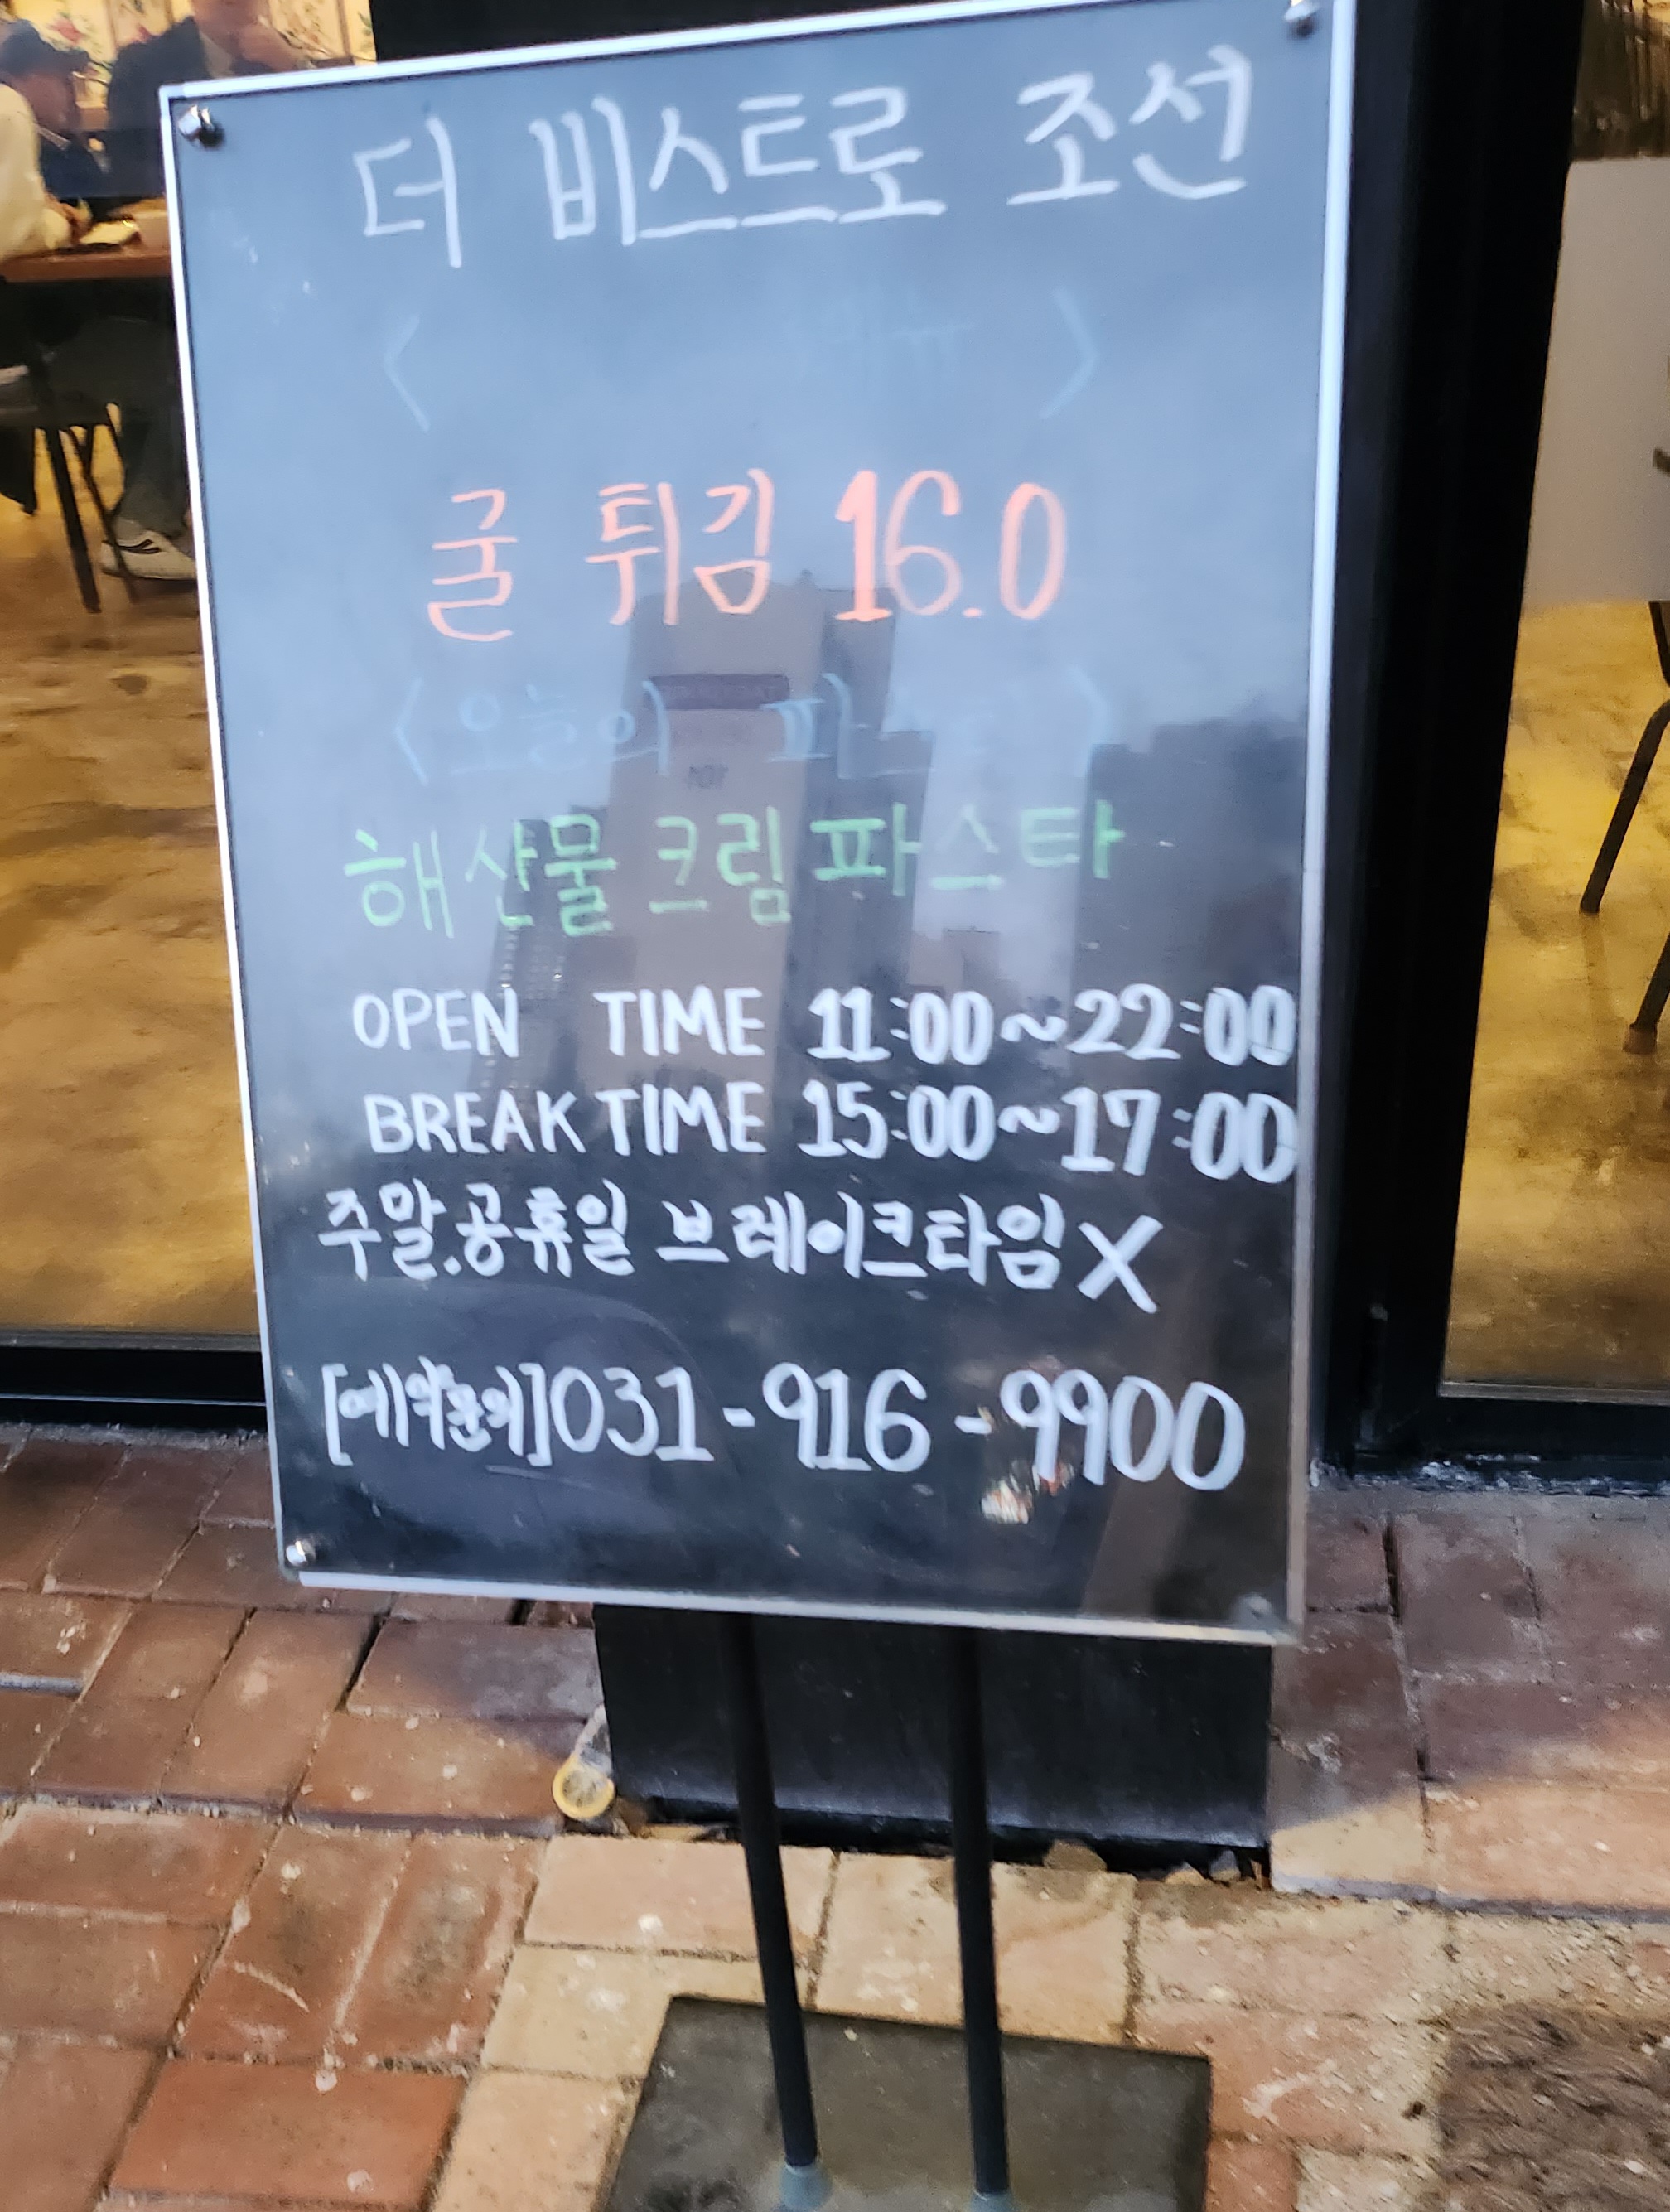 더 비스트로 조선
< 메뉴 >
굴 튀김 16.0
<오늘의 파스타>
해산물 크림 파스타
OPEN TIME 11:00~22:00
BREAK TIME 15:00~17:00
주말.공휴일 브레이크타임X
[예약문의]031-916-9900